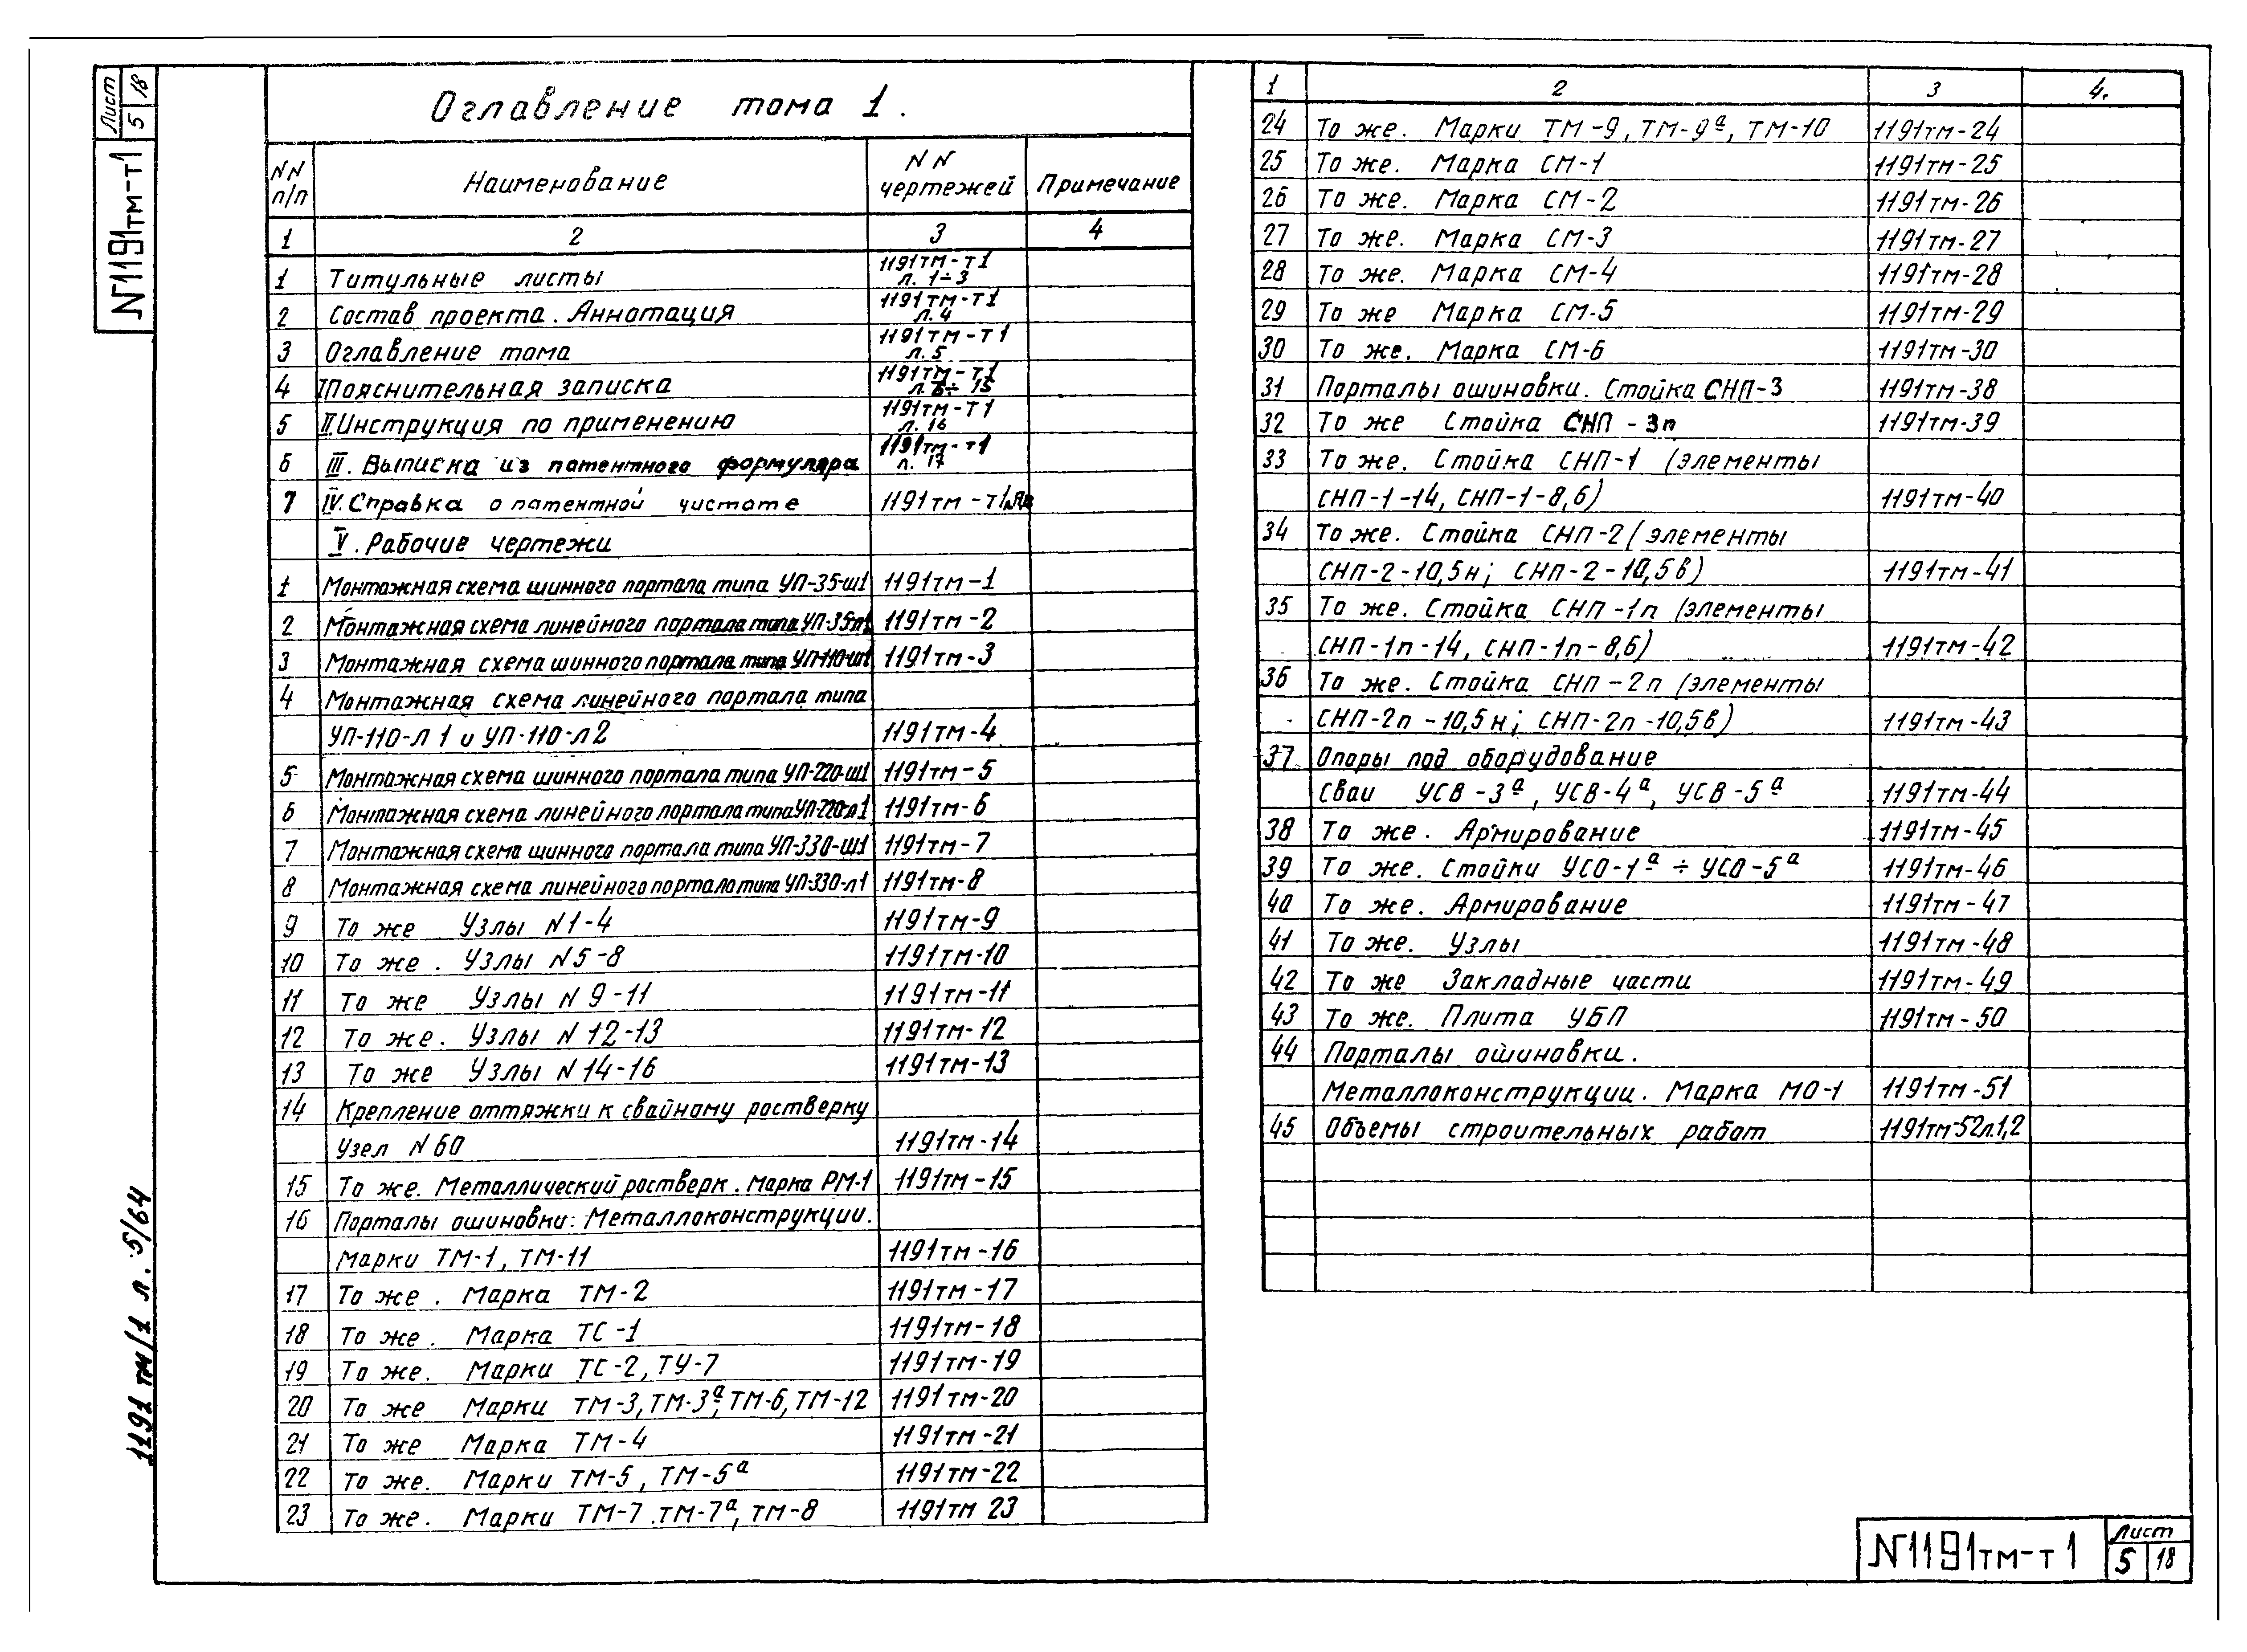 Лист
5 18
N1191тм-т1
Оглавление тома 1.
NN п/п Наименование NN чертежей Примечание
1 2 3 4
1 Титульные листы 1191тм-т1 л. 1÷3
2 Состав проекта. Аннотация 1191тм-т1 л.4
3 Оглавление тома 1191тм-т1 л.5
4 I Пояснительная записка 1191тм-т1 л.6÷15
5 II Инструкция по применению 1191тм-т1 л.16
6 III. Выписка из патентного формуляра 1191тм-т1 л.17
7 IV. Справка о патентной чистоте 1191тм-т1
V. Рабочие чертежи
1 Монтажная схема шинного портала типа УП-35-ш1 1191тм-1
2 Монтажная схема линейного портала типа УП-35л1 1191тм-2
3 Монтажная схема шинного портала типа УП-110-ш1 1191тм-3
4 Монтажная схема линейного портала типа
УП-110-л1 и УП-110-л2 1191тм-4
5 Монтажная схема шинного портала типа УП-220-ш1 1191тм-5
6 Монтажная схема линейного портала типа УП-220-л1 1191тм-6
7 Монтажная схема шинного портала типа УП-330-ш1 1191тм-7
8 Монтажная схема линейного портала типа УП-330-л1 1191тм-8
9 То же Узлы N1-4 1191тм-9
10 То же. Узлы N5-8 1191тм-10
11 То же Узлы N 9-11 1191тм-11
12 То же. Узлы N 12-13 1191тм-12
13 То же Узлы N 14-16 1191тм-13
14 Крепление оттяжки к свайному ростверку
Узел N 60 1191тм-14
15 То же. Металлический ростверк. Марка РМ-1 1191тм-15
16 Порталы ошиновки: Металлоконструкции.
Марки ТМ-1, ТМ-11 1191тм-16
17 То же. Марка ТМ-2 1191тм-17
18 То же. Марка ТС-1 1191тм-18
19 То же. Марки ТС-2, ТУ-7 1191тм-19
20 То же Марки ТМ-3, ТМ-3а, ТМ-6, ТМ-12 1191тм-20
21 То же Марка ТМ-4 1191тм-21
22 То же. Марки ТМ-5, ТМ-5а 1191тм-22
23 То же. Марки ТМ-7. ТМ-7а, ТМ-8 1191тм 23
1 2 3 4.
24 То же. Марки ТМ-9, ТМ-9а, ТМ-10 1191тм-24
25 То же. Марка СМ-1 1191тм-25
26 То же. Марка СМ-2 1191тм-26
27 То же. Марка СМ-3 1191тм-27
28 То же. Марка СМ-4 1191тм-28
29 То же Марка СМ-5 1191тм-29
30 То же. Марка СМ-6 1191тм-30
31 Порталы ошиновки. Стойка СНП-3 1191тм-38
32 То же Стойка СНП-3п 1191тм-39
33 То же. Стойка СНП-1 (элементы
СНП-1-14, СНП-1-8,6) 1191тм-40
34 То же. Стойка СНП-2 (элементы
СНП-2-10,5н; СНП-2-10,5в) 1191тм-41
35 То же. Стойка СНП-1п (элементы
СНП-1п-14, СНП-1п-8,6) 1191тм-42
36 То же. Стойка СНП-2п (элементы
СНП-2п-10,5н; СНП-2п-10,5в) 1191тм-43
37 Опоры под оборудование
Сваи УСВ-3а, УСВ-4а, УСВ-5а 1191тм-44
38 То же. Армирование 1191тм-45
39 То же. Стойки УСО-1а ÷ УСО-5а 1191тм-46
40 То же. Армирование 1191тм-47
41 То же. Узлы 1191тм-48
42 То же Закладные части 1191тм-49
43 То же. Плита УБП 1191тм-50
44 Порталы ошиновки.
Металлоконструкции. Марка МО-1 1191тм-51
45 Объемы строительных работ 1191тм-52л.1,2
1191тм/1 л. 5/64
N1191тм-т1
Лист
5 18